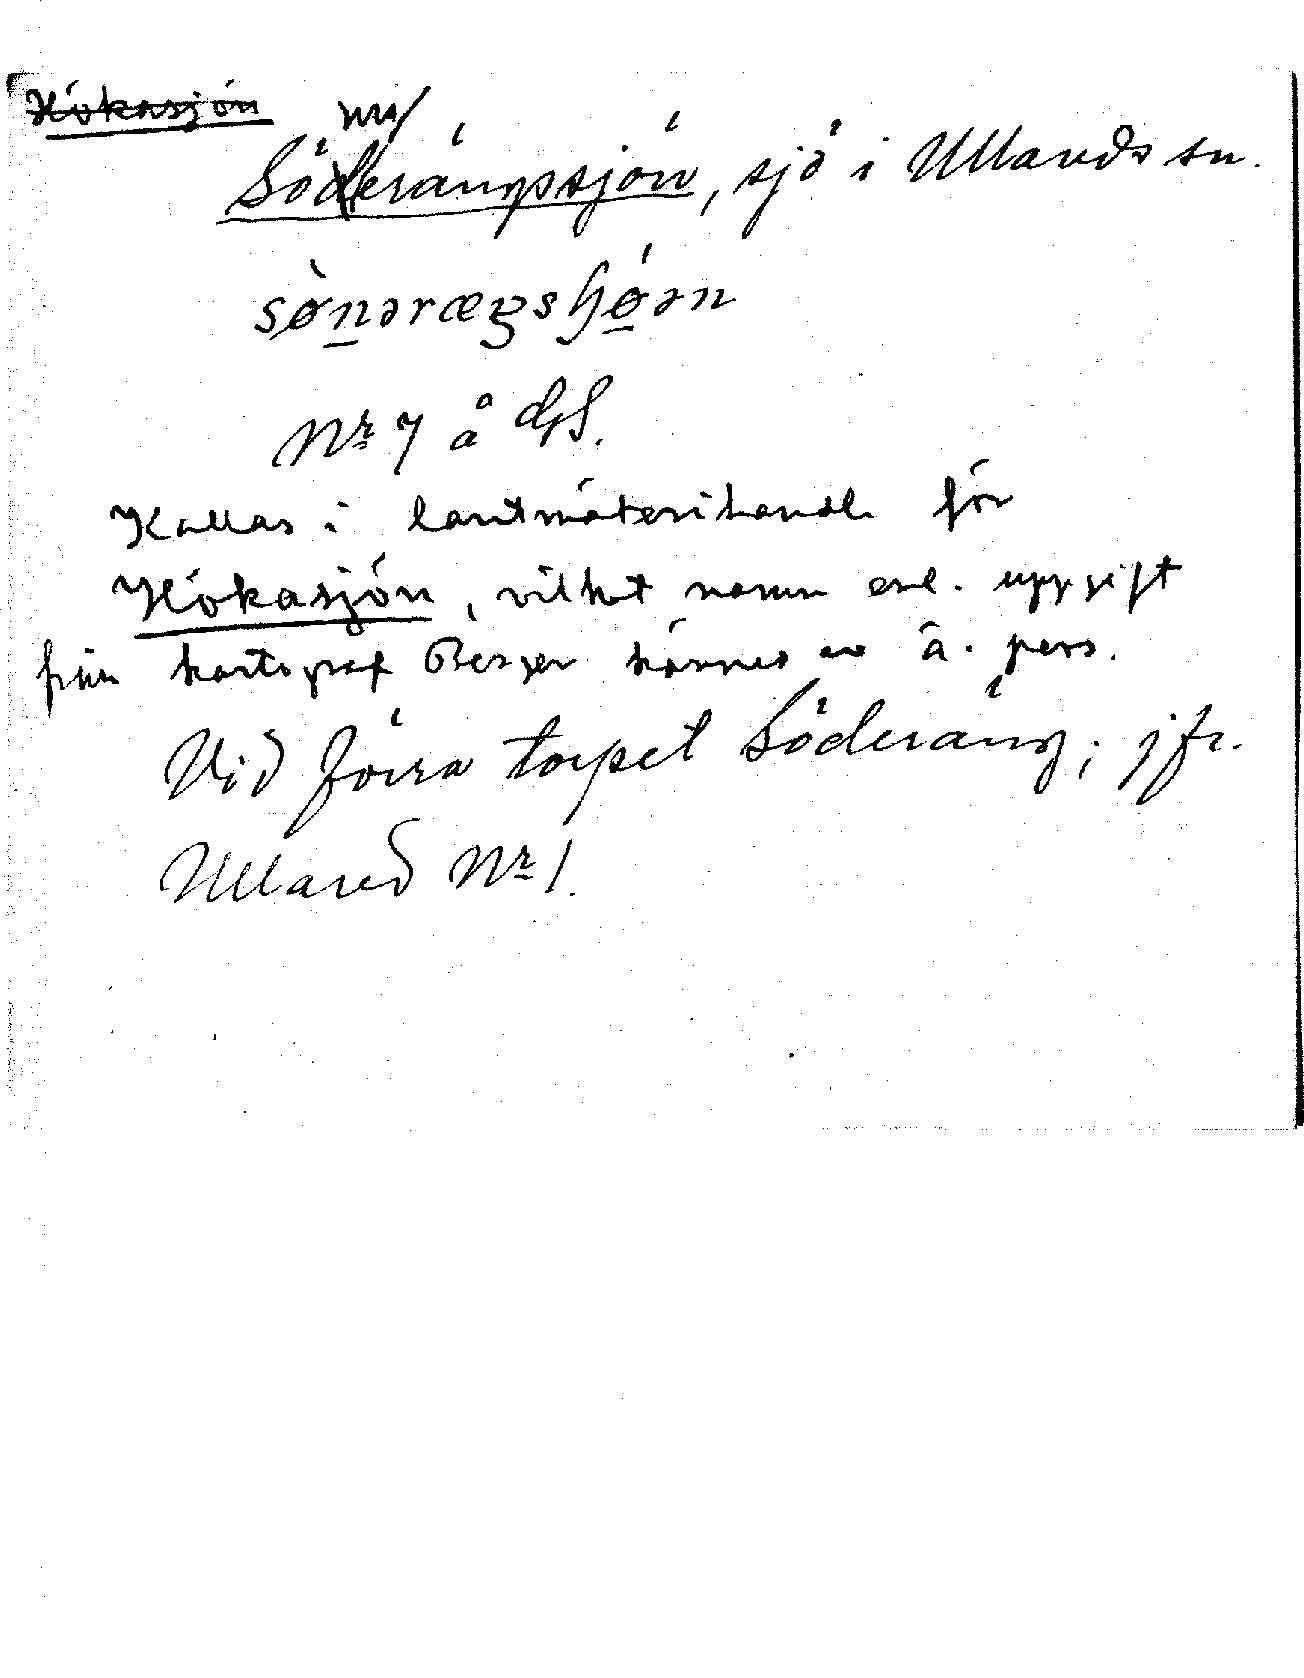 Hökasjön
nn/
Söderängssjön, sjö i Ullareds sn.
sø̀nərægsɧǿən
Nr 7 å GS.
Kallas i lantmäterihandl. för
Hökasjön, vilket namn enl. uppgift
från kartograf Berger kännes av ä. pers.
Vid förra torpet Söderäng; jfr.
Ullared Nr 1.